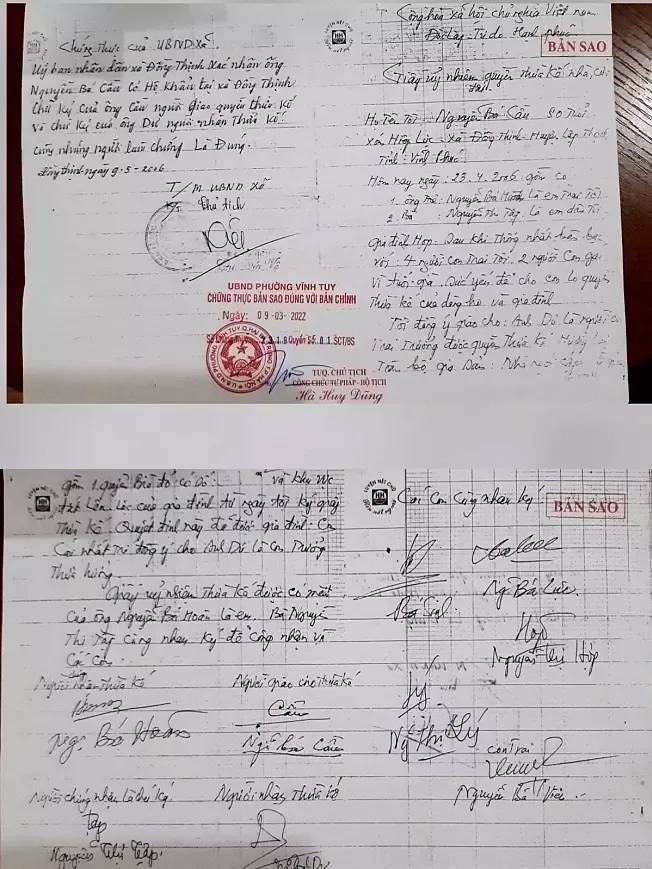 Chứng thực của UBND xã.
Uỷ ban nhân dân xã Đồng Thịnh xác nhận ông
Nguyễn Bá Cầu có Hộ Khẩu tại xã Đồng Thịnh
Chữ ký của ông Cầu người giao quyền thừa kế
và chữ ký của ông Dư người nhận Thừa Kế.
cùng những người làm chứng Là Đúng.
Đồng thịnh ngày 9-5-2006
T/M UBND xã
Chủ tịch
UBND PHƯỜNG VĨNH TUY
CHỨNG THỰC BẢN SAO ĐÚNG VỚI BẢN CHÍNH
Ngày: 09-03-2022
Quyển Số: 01 SCT/BS
TUQ. CHỦ TỊCH
CÔNG CHỨC TƯ PHÁP - HỘ TỊCH
Hà Huy Dũng
Cộng hòa xã hội chủ nghĩa Việt nam
Độc lập - Tự do - Hạnh phúc
BẢN SAO
Giấy uỷ nhiệm quyền thừa kế nhà,
Họ tên tôi: Nguyễn Bá Cầu 80 Tuổi
xóm Hiệp Lực - xã Đồng Thịnh - Huyện Lập Thạch
Tỉnh: Vĩnh Phúc
Hôm nay ngày: 23.4.2006 gồm có
1. ông : Nguyễn Bá Hoàn Là em Trai Tôi
2. Bà : Nguyễn Thị Tập. là em dâu Tôi
gia đình Họp. Sau khi Thống nhất
với: 4 người con Trai Tôi. 2 người Con gái
Vì tuổi già. Sức yếu để cho con lo quyền
Thừa kế của dòng họ và gia đình
Tôi đồng ý giao cho: Anh Dư Là người con
Trai Trưởng được quyền Thừa Kế
Toàn bộ gia sản:
gồm 1 quyển Bìa đỏ có số: và khu vực
đất của gia đình từ ngày tôi ký giấy
Thừa Kế. Quyết định này đã được gia đình. Con
Cái nhất trí đồng ý cho Anh Dư là Con Trưởng
Thừa hưởng
Giấy uỷ nhiệm Thừa kế được có mặt
của ông Nguyễn Bá Hoàn là em. Bà Nguyễn
Thị Tập cùng nhau ký để công nhận và
Các con.
Người giao cho thừa kế
Cầu
Ng. Bá Hoàn
Ngễ bá Cầu
Người nhận Thừa kế
Tập
Nguyễn Thị Tập.
Các Con cùng nhau ký
BẢN SAO
Ng Bá Lực.
Hợp
Nguyễn Thị Hợp
Ng Thị Lý
con Trai
Nguyễn Bá Viên